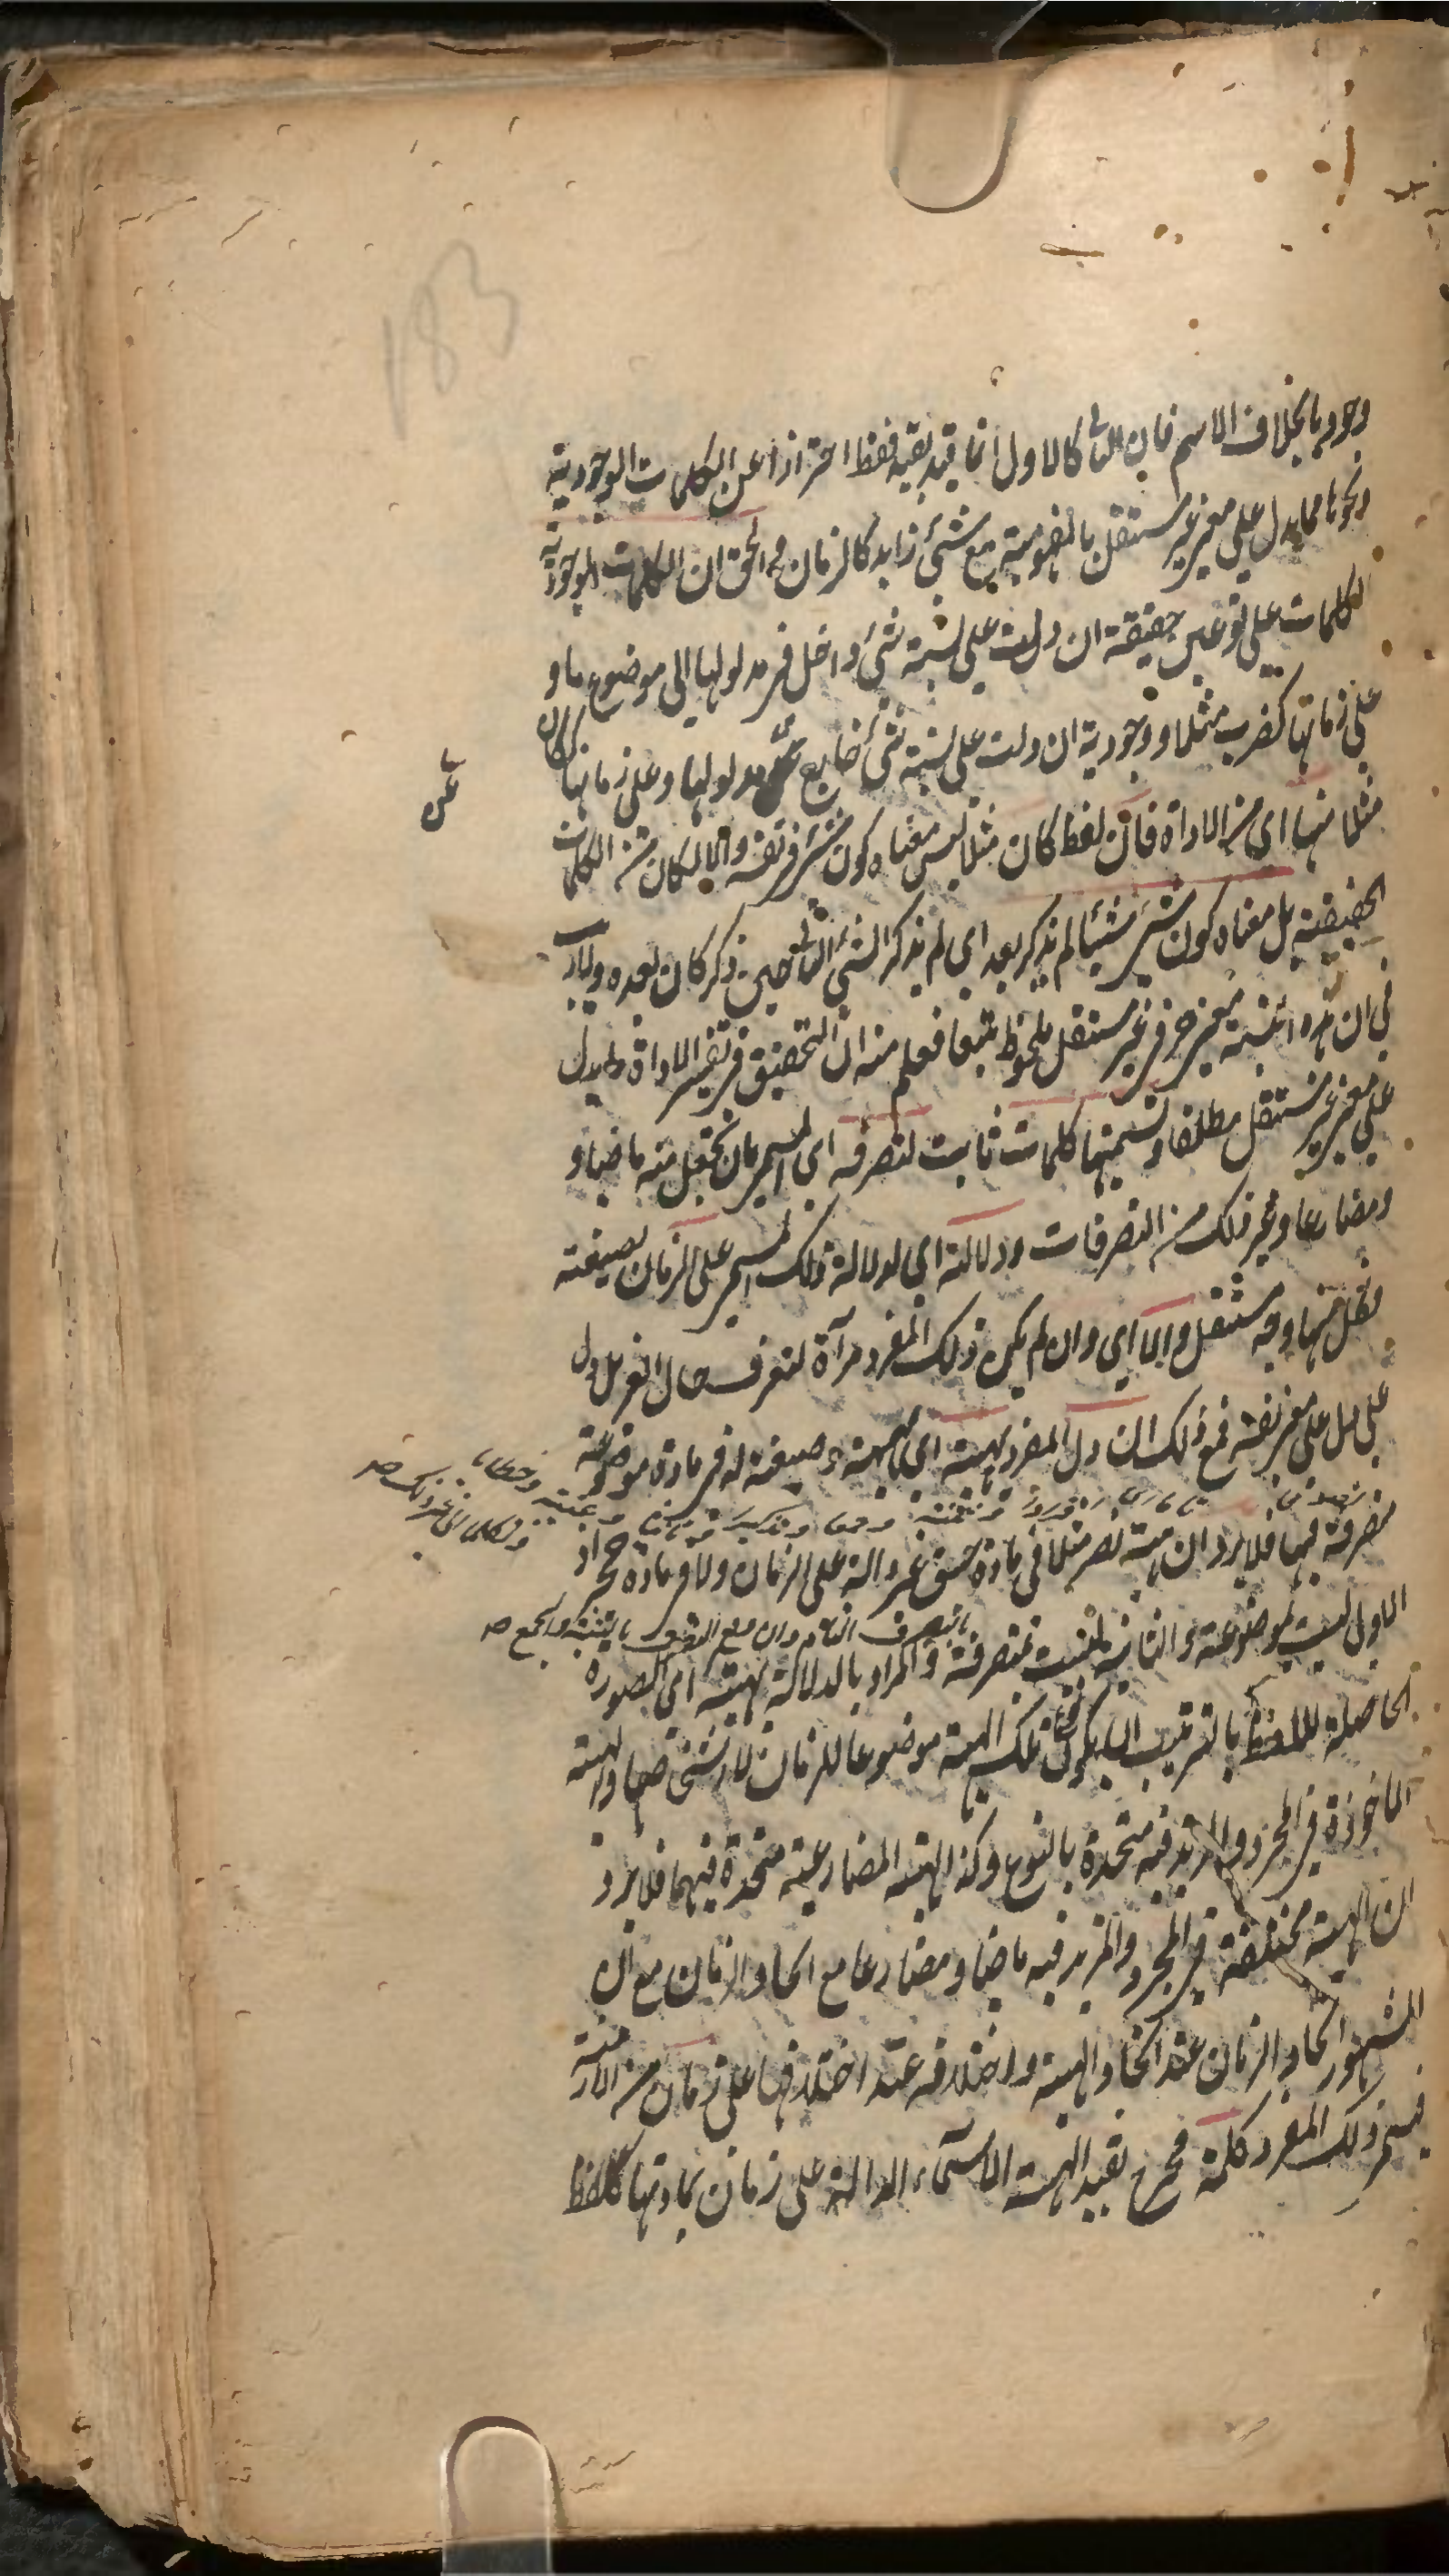 183
وجوديا بخلاف الاسم فان الثانى كالاول انما قيد بقيد فقط احترازا عن الكلمات الوجودية
ونحوها مما يدل على معنى غير مستقل بالمفهومية مع شئ زايد كالزمان والحق ان الكلمات الوجودية
الكلمات على نوعين حقيقة ان دلت على نسبة شئ داخل فى مدلولها الى موضوع ما و
على زمانها كضرب مثلا و وجودية ان دلت على نسبة شئ خارج عن مدلولها وعلى زمانها ككان
عن
مثلا منها اى من الاداة فان لفظ كان مثلا ليس معناه كون شئ فى نفسه والا لكان من الكلمات
الحقيقية بل معناه كون شئ شيئا لم يذكر بعد اى لم يذكر الشئ الثانى حين ذكر كان بعده ولا ريب
فى ان هذه النسبة معنى حرفى غير مستقل ملحوظ تبعا فعلم منه ان التحقيق فى تفسير الاداة ما يدل
على معنى غير مستقل مطلقا وتسميتها كلمات ثابت لتصرفه اى المسمى بان يجعل منه ماضيا و
ومضارعا وغير ذلك من التصرفات ودلالته اى لدلالة ذلك المسمى على الزمان بصيغته
مستقل والا اى وان لم يكن ذلك المفرد مرآة لتعرف حال الغير بل دل
على معنى بنفسه فمع ذلك ان دل المفرد بهيئته اى بهيئة وصيغة له فى مادة موضوعة
وغيبة وخطابا
وتكلما الى غير ذلك
متصرفة فيها فلا يرد ان هيئة نصر مثلا فى مادة جسق غير دالة على الزمان ولا فى مادة حجر اذ
بالتصرف التام وان وقع التصرف بالتثنية والجمع
الاول ليست بموضوعة والثانية ليست بمتصرفة والمراد بالدلالة بهيئته اى الصورة
الحاصلة للفظ بالترتيب ان يكون نوع تلك الهيئة موضوعا للزمان لا شخصها والهيئة
الماخوذة فى المجرد والمزيد فيه متحدة بالنوع وكذا الهيئة المضارعية متحدة فيهما فلا يرد
ان الهيئة مختلفة فى المجرد والمزيد فيه ماضيا ومضارعا مع اتحاد الزمان مع ان
المشهور اتحاد الزمان عند اتحاد الهيئة واختلافه عند اختلافها على زمان من الازمنة
فيسمى ذلك المفرد كلمة فخرج بقيد الهيئة الاسماء الدالة على زمان بمادتها كلفظ